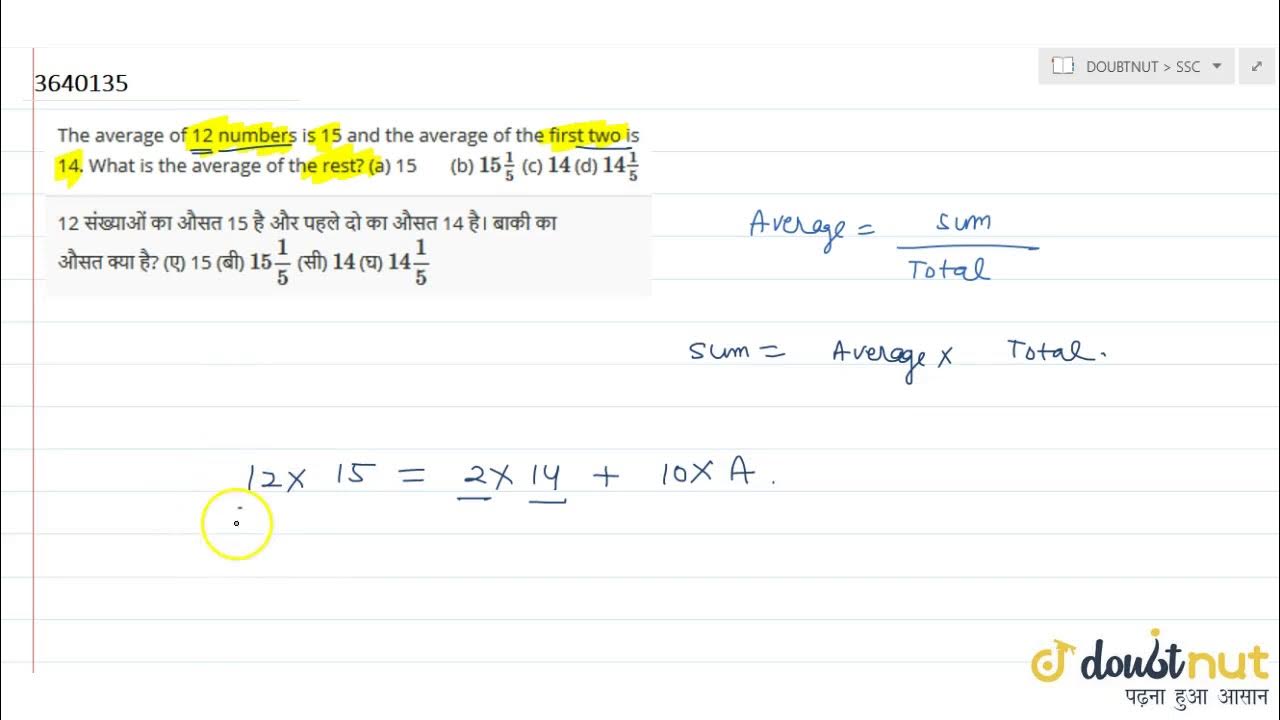 3640135
DOUBTNUT > SSC
The average of 12 numbers is 15 and the average of the first two is
14. What is the average of the rest? (a) 15 (b) 15 1/5 (c) 14 (d) 14 1/5
12 संख्याओं का औसत 15 है और पहले दो का औसत 14 है। बाकी का
औसत क्या है? (ए) 15 (बी) 15 1/5 (सी) 14 (घ) 14 1/5
Average = sum
Total
sum = Average × Total.
12 × 15 = 2 × 14 + 10 × A.
doubtnut
पढ़ना हुआ आसान